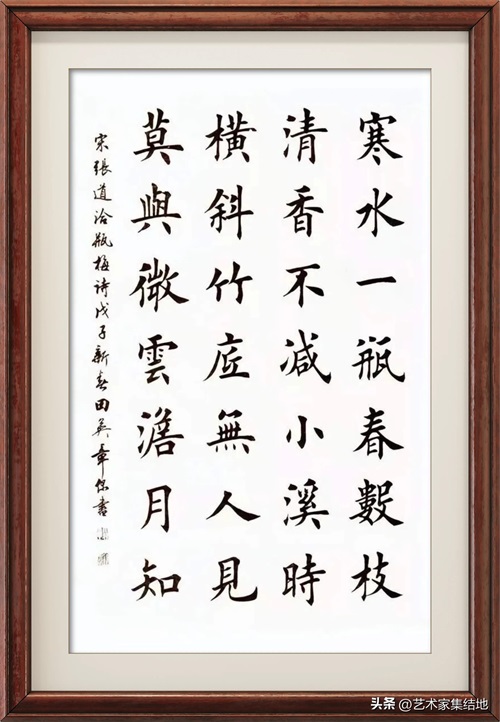 寒水一瓶春數枝
清香不減小溪時
橫斜竹底無人見
莫與微雲澹月知
宋張道洽瓶梅詩戊子新春田英章書
头条 @艺术家集结地